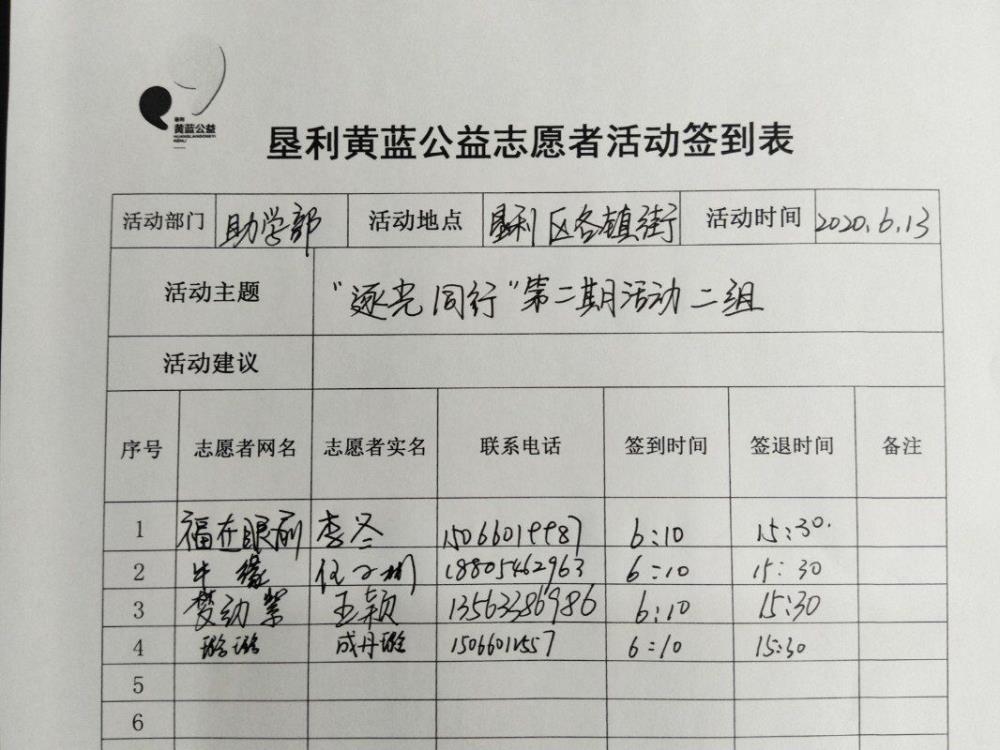 垦利
黄蓝公益
HUANGLANGONGYI
KENLI
垦利黄蓝公益志愿者活动签到表
活动部门 助学部 活动地点 垦利区各镇街 活动时间 2020.6.13
活动主题 “逐光同行”第二期活动二组
活动建议
序号 志愿者网名 志愿者实名 联系电话 签到时间 签退时间 备注
1 福在眼前 李冬 15066019987 6:10 15:30.
2 牛缘 任 18805462963 6:10 15:30
3 梦动 王颖 13563386986 6:10 15:30
4 璐璐 成丹璐 1506601 557 6:10 15:30
5
6